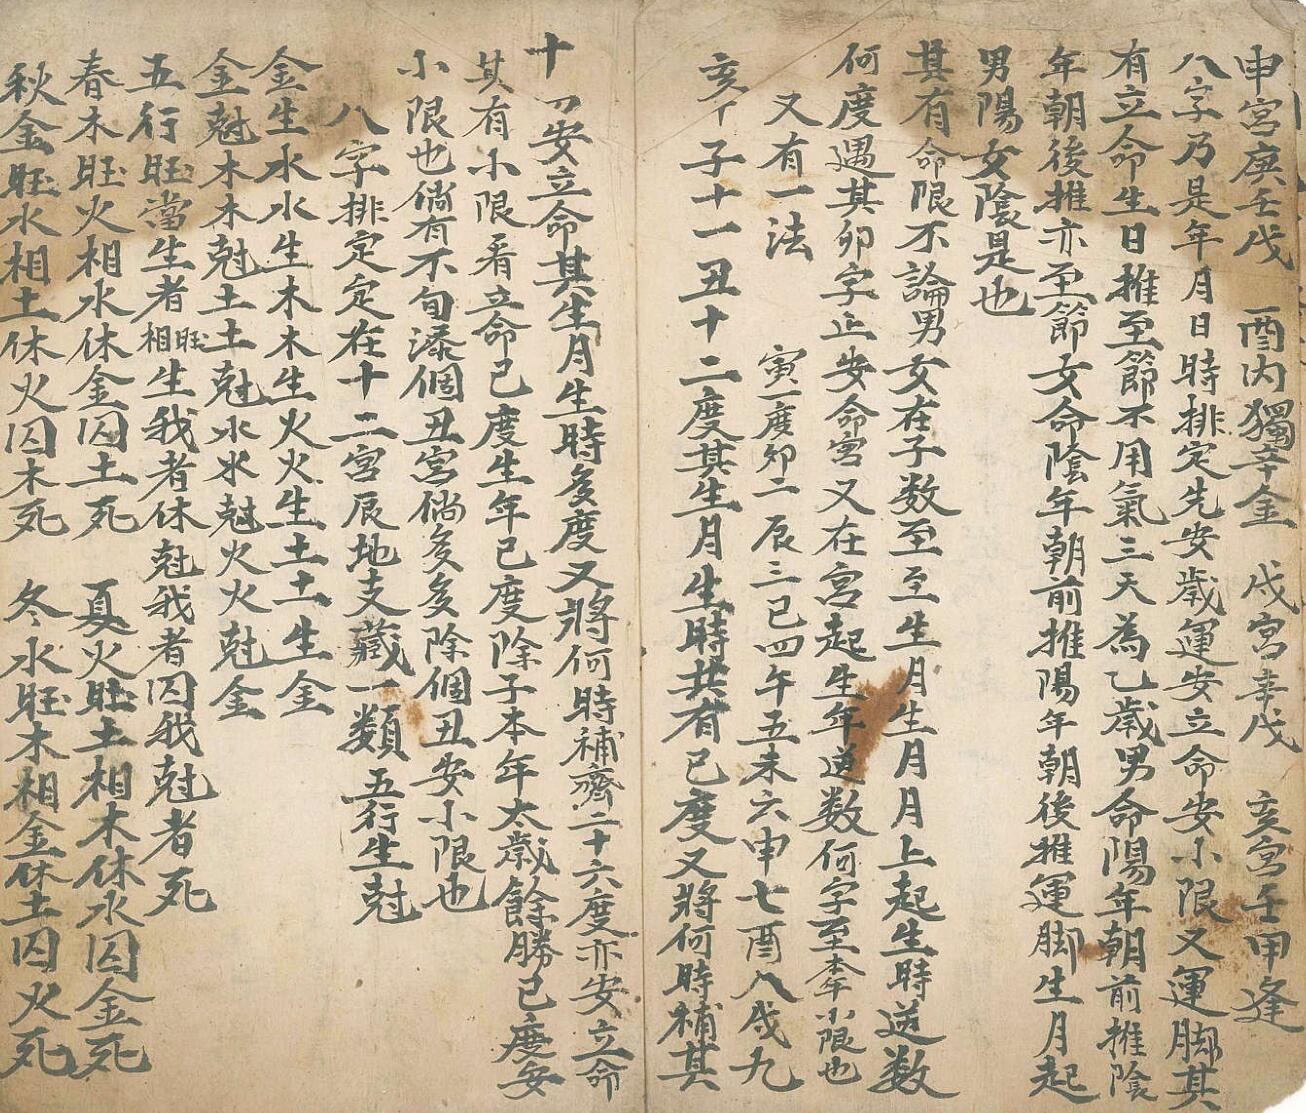 申宮庚壬戊 酉內獨辛金 戌宮辛戊 亥宮壬甲逢
八字乃是年月日時排定先安歲運安立命安小限又運脚其
有立命生日推至節不用氣三天為乙歲男命陽年朝前推陰
年朝後推亦至節女命陰年朝前推陽年朝後推運脚生月起
男陽女陰是也
其有命限不論男女在子数至至生月生月月上起生時逆数
何度遇其卯字止安命宮又在宮起生年逆数何字至本年小限也
又有一法 寅一度卯二辰三巳四午五未六申七酉八戌九
亥十子十一丑十二度其生月生時共有已度又將何時補其
十四安立命其生月生時多度又將何時補齊二十六度亦安立命
其有小限看立命已度生年已度除子本年太歲餘勝已度安
小限也倘有不旬添個丑宮倘多多除個丑安小限也
八字排定定在十二宮辰地支藏一類五行生尅
金生水水生木木生火火生土土生金
金尅木木尅土土尅水水尅火火尅金
五行旺當生者相旺生我者休尅我者囚我尅者死
春木旺火相水休金囚土死 夏火旺土相木休水囚金死
秋金旺水相土休火囚木死 冬水旺木相金休土囚火死